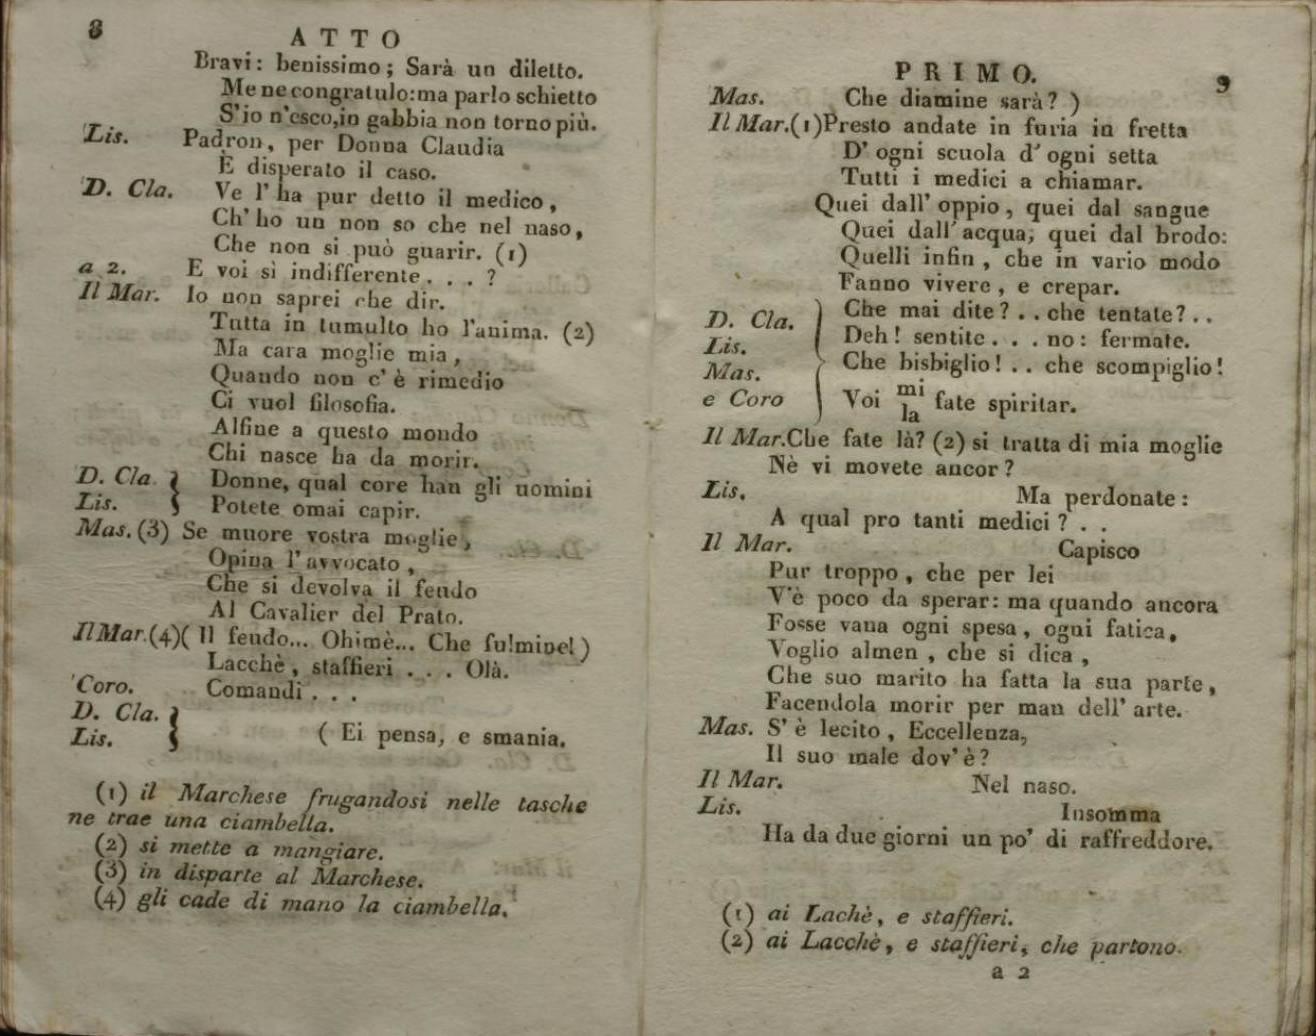 8
ATTO
Bravi: benissimo; Sarà un diletto.
Me ne congratulo: ma parlo schietto
S'io n'esco, in gabbia non torno più.
Lis. Padron, per Donna Claudia
È disperato il caso.
D. Cla. Ve l' ha pur detto il medico,
Ch' ho un non so che nel naso,
Che non si può guarir. (1)
a 2. E voi sì indifferente . . . ?
Il Mar. Io non saprei che dir.
Tutta in tumulto ho l'anima. (2)
Ma cara moglie mia,
Quando non c' è rimedio
Ci vuol filosofia.
Alfine a questo mondo
Chi nasce ha da morir.
D. Cla. } Donne, qual core han gli uomini
Lis. } Potete omai capir.
Mas. (3) Se muore vostra moglie,
Opina l'avvocato,
Che si devolva il feudo
Al Cavalier del Prato.
Il Mar. (4) ( Il feudo... Ohimè... Che fulmine! )
Lacchè, staffieri . . . Olà.
Coro. Comandi . . .
D. Cla. }
Lis. } ( Ei pensa, e smania.
(1) il Marchese frugandosi nelle tasche
ne trae una ciambella.
(2) si mette a mangiare.
(3) in disparte al Marchese.
(4) gli cade di mano la ciambella.
PRIMO. 9
Mas. Che diamine sarà? )
Il Mar. (1) Presto andate in furia in fretta
D' ogni scuola d' ogni setta
Tutti i medici a chiamar.
Quei dall' oppio, quei dal sangue
Quei dall' acqua, quei dal brodo:
Quelli infin, che in vario modo
Fanno vivere, e crepar.
D. Cla. ) Che mai dite? . . che tentate? . .
Lis. Deh! sentite . . . no: fermate.
Mas. Che bisbiglio! . . che scompiglio!
e Coro ) Voi mi la fate spiritar.
Il Mar. Che fate là? (2) si tratta di mia moglie
Nè vi movete ancor?
Lis. Ma perdonate:
A qual pro tanti medici? . .
Il Mar. Capisco
Pur troppo, che per lei
V'è poco da sperar: ma quando ancora
Fosse vana ogni spesa, ogni fatica,
Voglio almen, che si dica,
Che suo marito ha fatta la sua parte,
Facendola morir per man dell' arte.
Mas. S' è lecito, Eccellenza,
Il suo male dov' è?
Il Mar. Nel naso.
Lis. Insomma
Ha da due giorni un po' di raffreddore.
(1) ai Lachè, e staffieri.
(2) ai Lacchè, e staffieri, che partono.
a 2